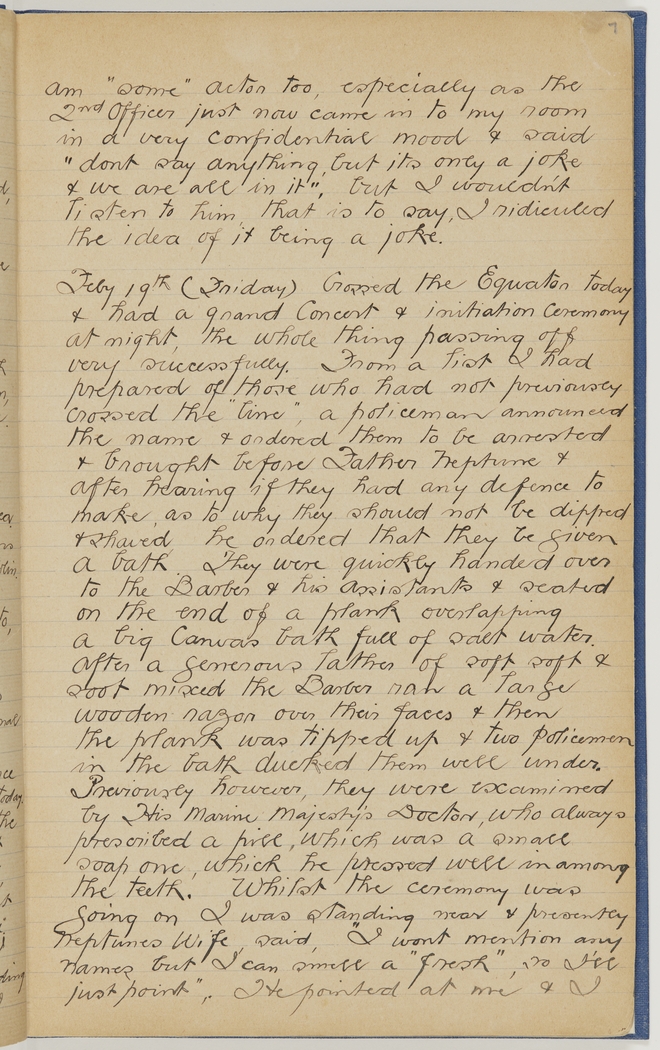 7
am "some" actor too, especially as the
2nd Officer just now came in to my room
in a very confidential mood & said
"dont say anything, but its only a joke
& we are all in it", but I wouldn't
listen to him, that is to say, I ridiculed
the idea of it being a joke.
Feby 19th (Friday) Crossed the Equator today
& had a grand Concert & initiation Ceremony
at night, the whole thing passing off
very successfully. From a list I had
prepared of those who had not previously
crossed the "line", a policeman announced
the name & ordered them to be arrested
& brought before Father Neptune &
after hearing if they had any defence to
make, as to why they should not be dipped
& shaved he ordered that they be given
a bath. They were quickly handed over
to the Barber & his assistants & seated
on the end of a plank overlapping
a big Canvas bath full of salt water.
After a generous lather of soft soft &
soot mixed the Barber ran a large
wooden razor over their faces & then
the plank was tipped up & two policemen
in the bath ducked them well under.
Previously however, they were examined
by His Marine Majesty's Doctor, who always
prescribed a pill, which was a small
soap one, which he pressed well in among
the teeth. Whilst the ceremony was
going on I was standing near & presently
Neptunes Wife, said, "I wont mention any
names but I can smell a "fresh", so I'll
just point". He pointed at me & I